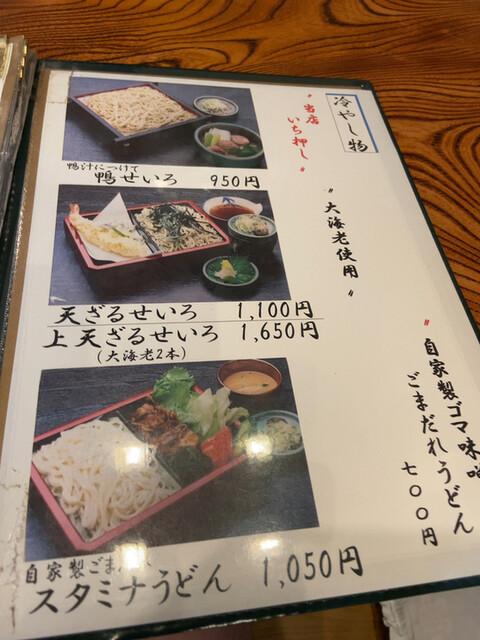 冷やし物
〝当店
いち押し〟
鴨汁につけて
鴨せいろ 950円
〝大海老使用〟
天ざるせいろ 1,100円
上天ざるせいろ 1,650円
(大海老2本)
〝自家製ゴマ味
ごまだれうどん
七〇〇円
自家製ごま
スタミナうどん 1,050円